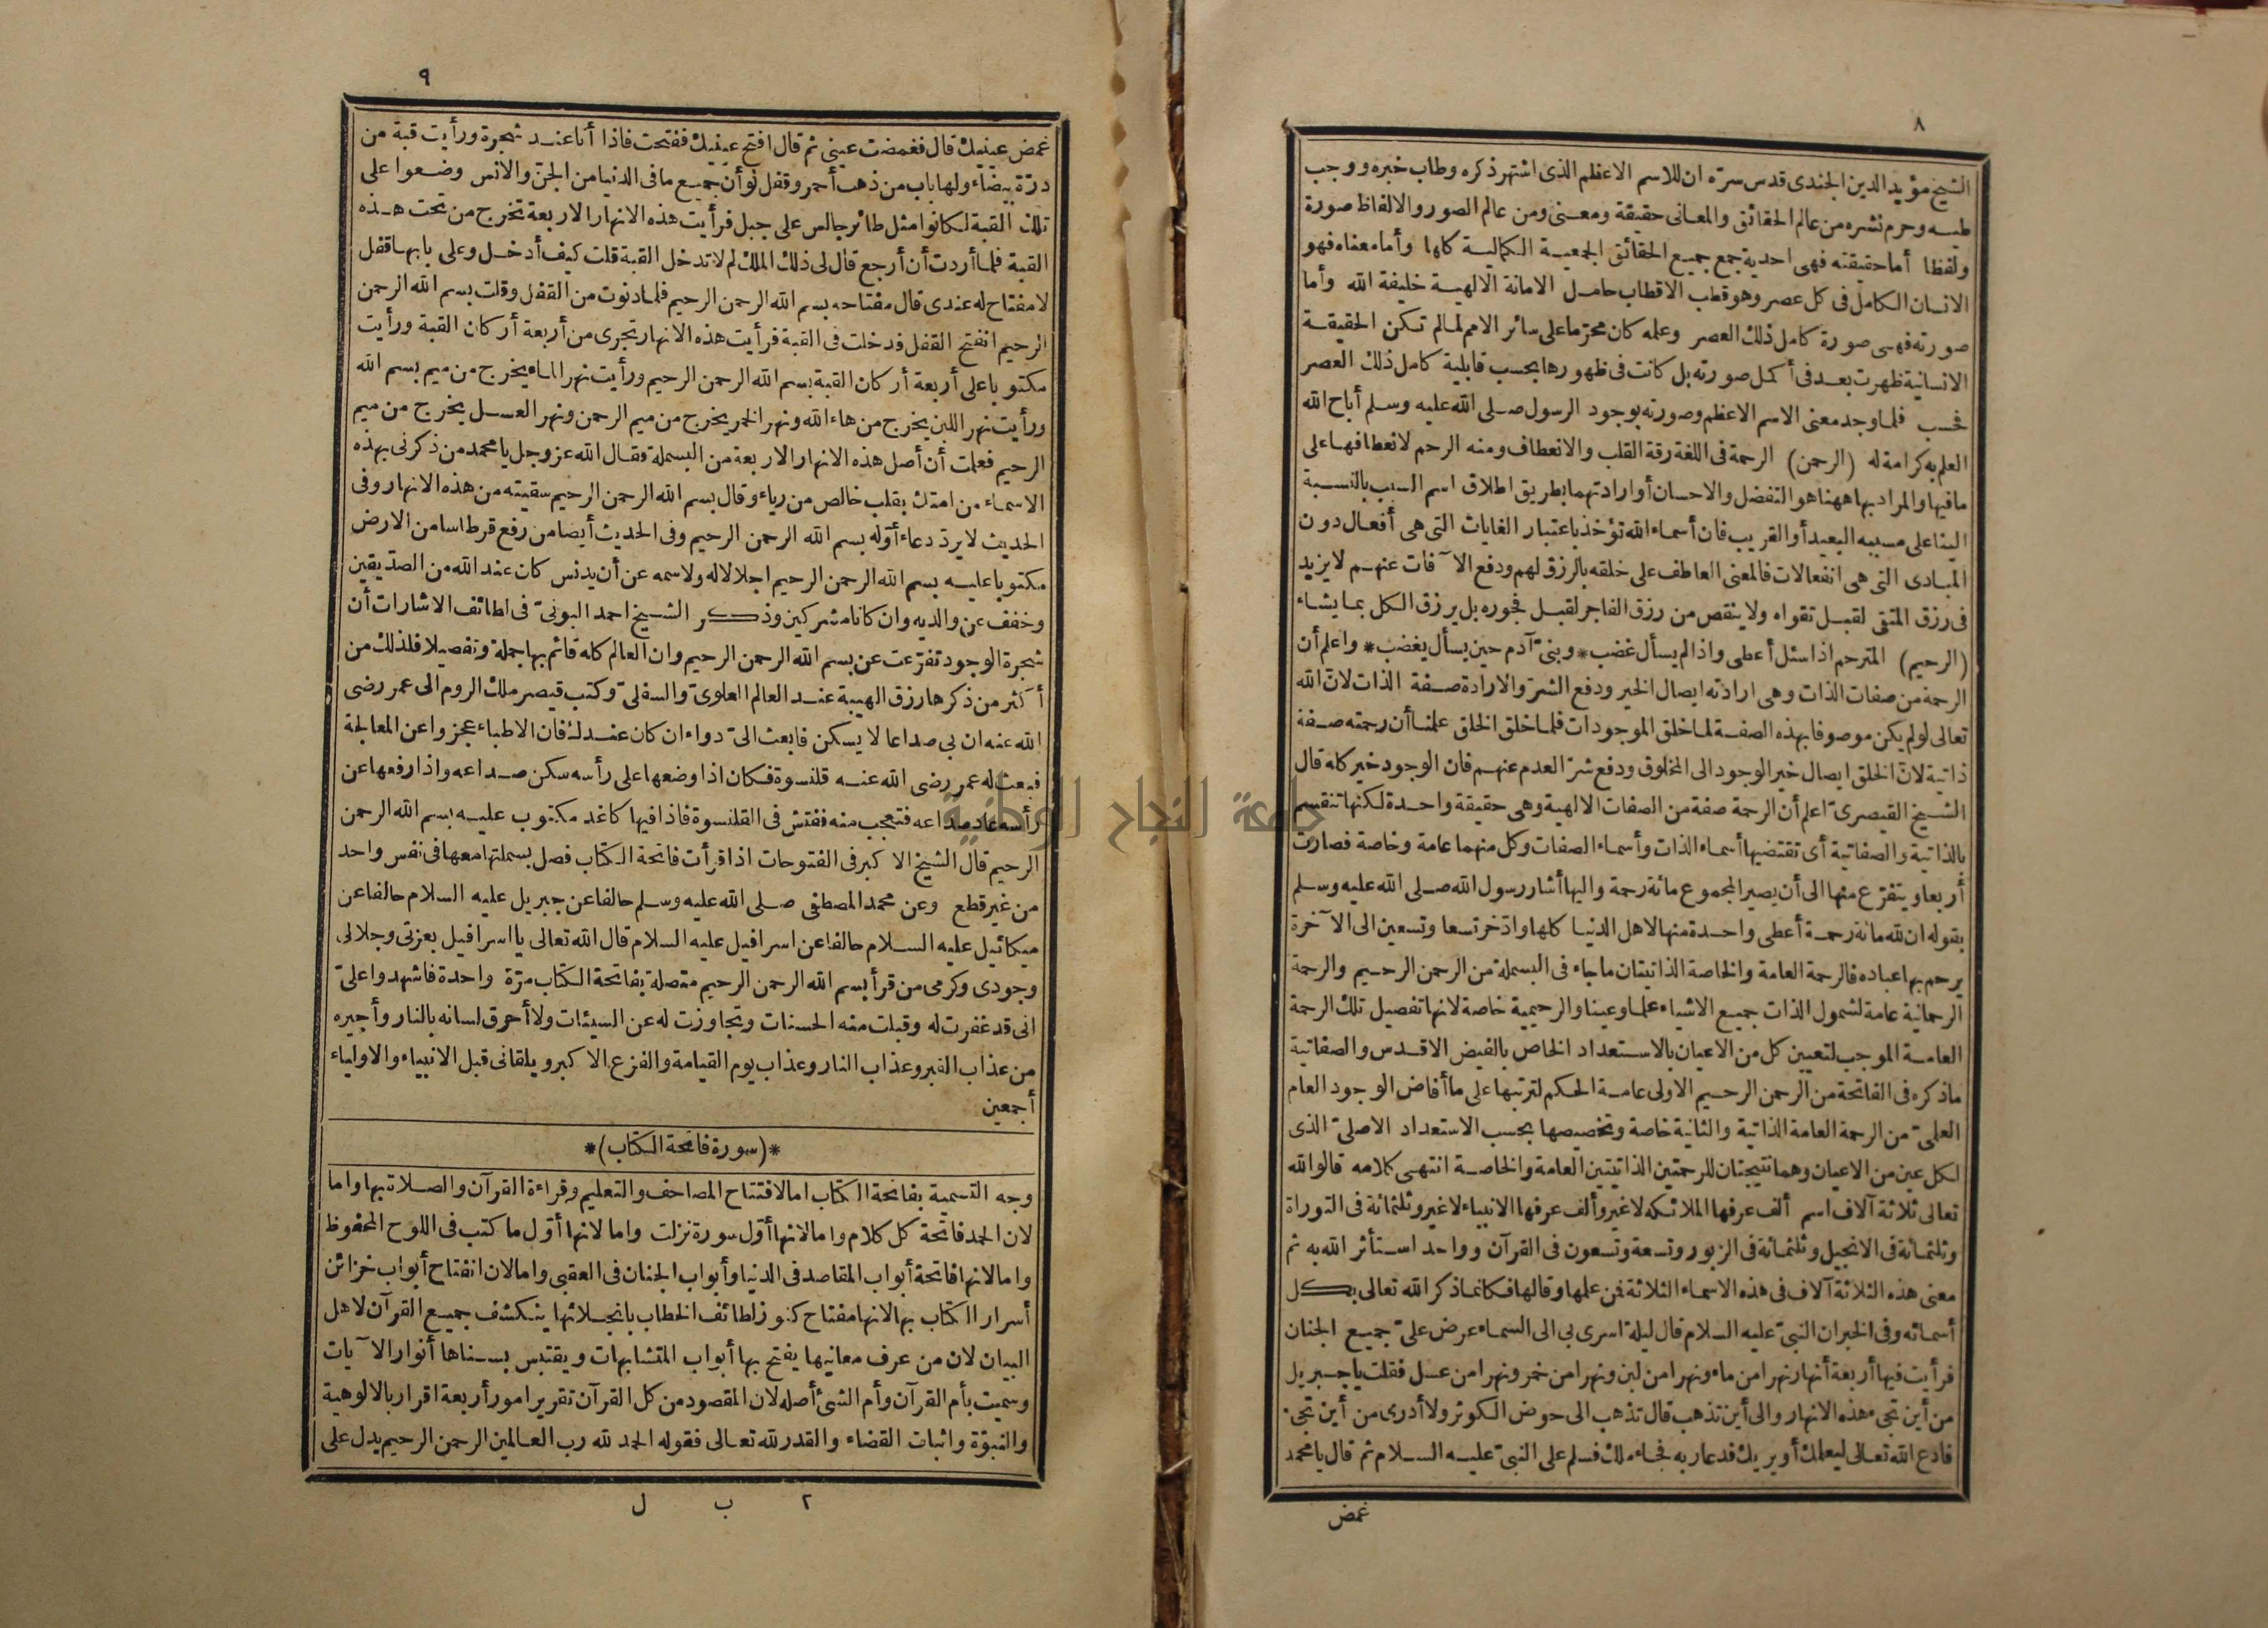 ٨
الشيخ مؤيد الدين الجندى قدس سرّه ان للاسم الاعظم الذى اشتهر ذكره وطاب خبره ووجب
طيه وحرم نشره من عالم الحقائق والمعانى حقيقة ومعنى ومن عالم الصور والالفاظ صورة
ولفظا أما حقيقته فهى احدية جمع جميع الحقائق الجمعية الكمالية كلها وأما معناه فهو
الانسان الكامل فى كل عصر وهو قطب الاقطاب حامل الامانة الالهية خليفة الله وأما
صورته فهى صورة كامل ذلك العصر وعلمه كان محرّما على سائر الامم لما لم تكن الحقيقة
الانسانية ظهرت بعد فى أكمل صورته بل كانت فى ظهورها بحسب قابلية كامل ذلك العصر
فحسب فلما وجد معنى الاسم الاعظم وصورته بوجود الرسول صلى الله عليه وسلم أباح الله
العلم به كرامة له (الرحمن) الرحمة فى اللغة رقة القلب والانعطاف ومنه الرحم لانعطافها على
ما فيها والمراد بها ههنا هو التفضل والاحسان أو ارادتهما بطريق اطلاق اسم السبب بالنسبة
الينا على مسببه البعيد أو القريب فان أسماء الله تؤخذ باعتبار الغايات التى هى أفعال دون
المبادى التى هى انفعالات فالمعنى العاطف على خلقه بالرزق لهم ودفع الآفات عنهم لا يزيد
فى رزق المتقى لقبل تقواه ولا ينقص من رزق الفاجر لقبل فجوره بل يرزق الكل بما يشاء
(الرحيم) المترحم اذا سئل أعطى واذا لم يسأل غضب * وبنىّ آدم حين يسأل يغضب * واعلم أن
الرحمة من صفات الذات وهى ارادته ايصال الخير ودفع الشرّ والارادة صفة الذات لانّ الله
تعالى لو لم يكن موصوفا بهذه الصفة لما خلق الموجودات فلما خلق الخلق علمنا أن رحمته صفة
ذاتية لانّ الخلق ايصال خير الوجود الى المخلوق ودفع شرّ العدم عنهم فان الوجود خير كله قال
الشيخ القيصرىّ اعلم أن الرحمة صفة من الصفات الالهية وهى حقيقة واحدة لكنها تنقسم
بالذاتية والصفاتية أى تقتضيها أسماء الذات وأسماء الصفات وكل منهما عامة وخاصة فصارت
أربعا ويتفرّع منها الى أن يصير المجموع مائة رحمة واليها أشار رسول الله صلى الله عليه وسلم
بقوله ان لله مائة رحمة أعطى واحدة منها لاهل الدنيا كلها وادّخر تسعا وتسعين الى الآخرة
يرحم بها عباده فالرحمة العامة والخاصة الذاتيتان ما جاء فى البسملة من الرحمن الرحيم والرحمة
الرحمانية عامة لشمول الذات جميع الاشياء علما وعينا والرحيمية خاصة لانها تفصيل تلك الرحمة
العامة الموجب لتعيين كل من الاعيان بالاستعداد الخاص بالفيض الاقدس والصفاتية
ما ذكره فى الفاتحة من الرحمن الرحيم الاولى عامة الحكم لترتبها على ما أفاض الوجود العام
العلمىّ من الرحمة العامة الذاتية والثانية خاصة وتخصيصها بحسب الاستعداد الاصلىّ الذى
لكل عين من الاعيان وهما نتيجتان للرحمتين الذاتيتين العامة والخاصة انتهى كلامه قالوا لله
تعالى ثلاثة آلاف اسم ألف عرفها الملائكة لا غير وألف عرفها الانبياء لا غير وثلثمائة فى التوراة
وثلثمائة فى الانجيل وثلثمائة فى الزبور وتسعة وتسعون فى القرآن وواحد استأثر الله به ثم
معنى هذه الثلاثة آلاف فى هذه الاسماء الثلاثة فمن علمها وقالها فكانما ذكر الله تعالى بكل
أسمائه وفى الخبر ان النبىّ عليه السلام قال ليلة اسرى بى الى السماء عرض علىّ جميع الجنان
فرأيت فيها أربعة أنهار نهرا من ماء ونهرا من لبن ونهرا من خمر ونهرا من عسل فقلت يا جبريل
من أين تجىء هذه الانهار والى أين تذهب قال تذهب الى حوض الكوثر ولا أدرى من أين تجىء
فادع الله تعالى ليعلمك أو يريك فدعا ربه فجاء ملك فسلم على النبىّ عليه السلام ثم قال يا محمد
غمض
٩
غمض عينيك قال فغمضت عينى ثم قال افتح عينيك ففتحت فاذا أنا عند شجرة ورأيت قبة من
درّة بيضاء ولها باب من ذهب أحمر وقفل لو أن جميع ما فى الدنيا من الجنّ والانس وضعوا على
تلك القبة لكانوا مثل طائر جالس على جبل فرأيت هذه الانهار الاربعة تخرج من تحت هذه
القبة فلما أردت أن أرجع قال لى ذلك الملك لم لا تدخل القبة قلت كيف أدخل وعلى بابها قفل
لا مفتاح له عندى قال مفتاحه بسم الله الرحمن الرحيم فلما دنوت من القفل وقلت بسم الله الرحمن
الرحيم انفتح القفل فدخلت فى القبة فرأيت هذه الانهار تجرى من أربعة أركان القبة ورأيت
مكتوبا على أربعة أركان القبة بسم الله الرحمن الرحيم ورأيت نهر الماء يخرج من ميم بسم الله
ورأيت نهر اللبن يخرج من هاء الله ونهر الخمر يخرج من ميم الرحمن ونهر العسل يخرج من ميم
الرحيم فعلمت أن أصل هذه الانهار الاربعة من البسملة فقال الله عز وجل يا محمد من ذكرنى بهذه
الاسماء من امتك بقلب خالص من رياء وقال بسم الله الرحمن الرحيم سقيته من هذه الانهار وفى
الحديث لا يردّ دعاء أوّله بسم الله الرحمن الرحيم وفى الحديث أيضا من رفع قرطاسا من الارض
مكتوبا عليه بسم الله الرحمن الرحيم اجلالا له ولاسمه عن أن يدنس كان عند الله من الصدّيقين
وخفف عن والديه وان كانا مشركين وذكر الشيخ احمد البونىّ فى لطائف الاشارات أن
شجرة الوجود تفرّعت عن بسم الله الرحمن الرحيم وان العالم كله قائم بها جملة وتفصيلا فلذلك من
أكثر من ذكرها رزق الهيبة عند العالم العلوىّ والسفلىّ وكتب قيصر ملك الروم الى عمر رضى
الله عنه ان بى صداعا لا يسكن فابعث الىّ دواء ان كان عندك فان الاطباء عجزوا عن المعالجة
فبعث له عمر رضى الله عنه قلنسوة فكان اذا وضعها على رأسه سكن صداعه واذا رفعها عن
رأسه عاد صداعه فتعجب منه ففتش فى القلنسوة فاذا فيها كاغد مكتوب عليه بسم الله الرحمن
الرحيم قال الشيخ الاكبر فى الفتوحات اذا قرأت فاتحة الكتاب فصل بسملتها معها فى نفس واحد
من غير قطع وعن محمد المصطفى صلى الله عليه وسلم حالفا عن جبريل عليه السلام حالفا عن
ميكائيل عليه السلام حالفا عن اسرافيل عليه السلام قال الله تعالى يا اسرافيل بعزتى وجلالى
وجودى وكرمى من قرأ بسم الله الرحمن الرحيم متصلة بفاتحة الكتاب مرّة واحدة فاشهدوا علىّ
انى قد غفرت له وقبلت منه الحسنات وتجاوزت له عن السيئات ولا أحرق لسانه بالنار وأجيره
من عذاب القبر وعذاب النار وعذاب يوم القيامة والفزع الاكبر ويلقانى قبل الانبياء والاولياء
أجمعين
*(سورة فاتحة الكتاب)*
وجه التسمية بفاتحة الكتاب اما لافتتاح المصاحف والتعليم وقراءة القرآن والصلاة بها واما
لان الحمد فاتحة كل كلام واما لانها أوّل سورة نزلت واما لانها أوّل ما كتب فى اللوح المحفوظ
واما لانها فاتحة أبواب المقاصد فى الدنيا وأبواب الجنان فى العقبى واما لان انفتاح أبواب خزائن
أسرار الكتاب بها لانها مفتاح كنوز لطائف الخطاب بانجلائها ينكشف جميع القرآن لاهل
البيان لان من عرف معانيها يفتح بها أبواب المتشابهات ويقتبس بسناها أنوار الآيات
وسميت بأم القرآن وأم الشئ أصله لان المقصود من كل القرآن تقرير امور أربعة اقرار بالالوهية
والنبوّة واثبات القضاء والقدر لله تعالى فقوله الحمد لله رب العالمين الرحمن الرحيم يدل على
٢ ب ل
جامعة النجاح الوطنية